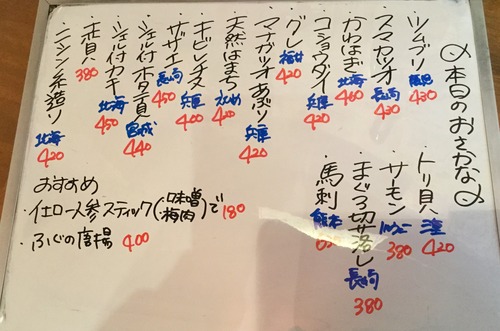 本日のおさかな
・ツムブリ 鹿児島 430
・スマカツオ 長崎 430
・かわはぎ 北海 460
・コショウダイ 兵庫 420
・グレ 福井 420
・マナガツオあぶり 兵庫 420
・天然はまち 420
・ホビレメス 兵庫 400
・サザエ 長崎 450
・シェル付ホタテ貝 宮城 440
・シェル付カキ 北海 450
・ホッキ貝 380
・ニシン糸造り 北海 420
・トリ貝 420
・サーモン ノルウェー 380
・まぐろ切り落し 長崎 380
・馬刺 熊本
おすすめ
・イエロー人参スティック(味噌・梅肉)で 180
・ふぐの唐揚 400